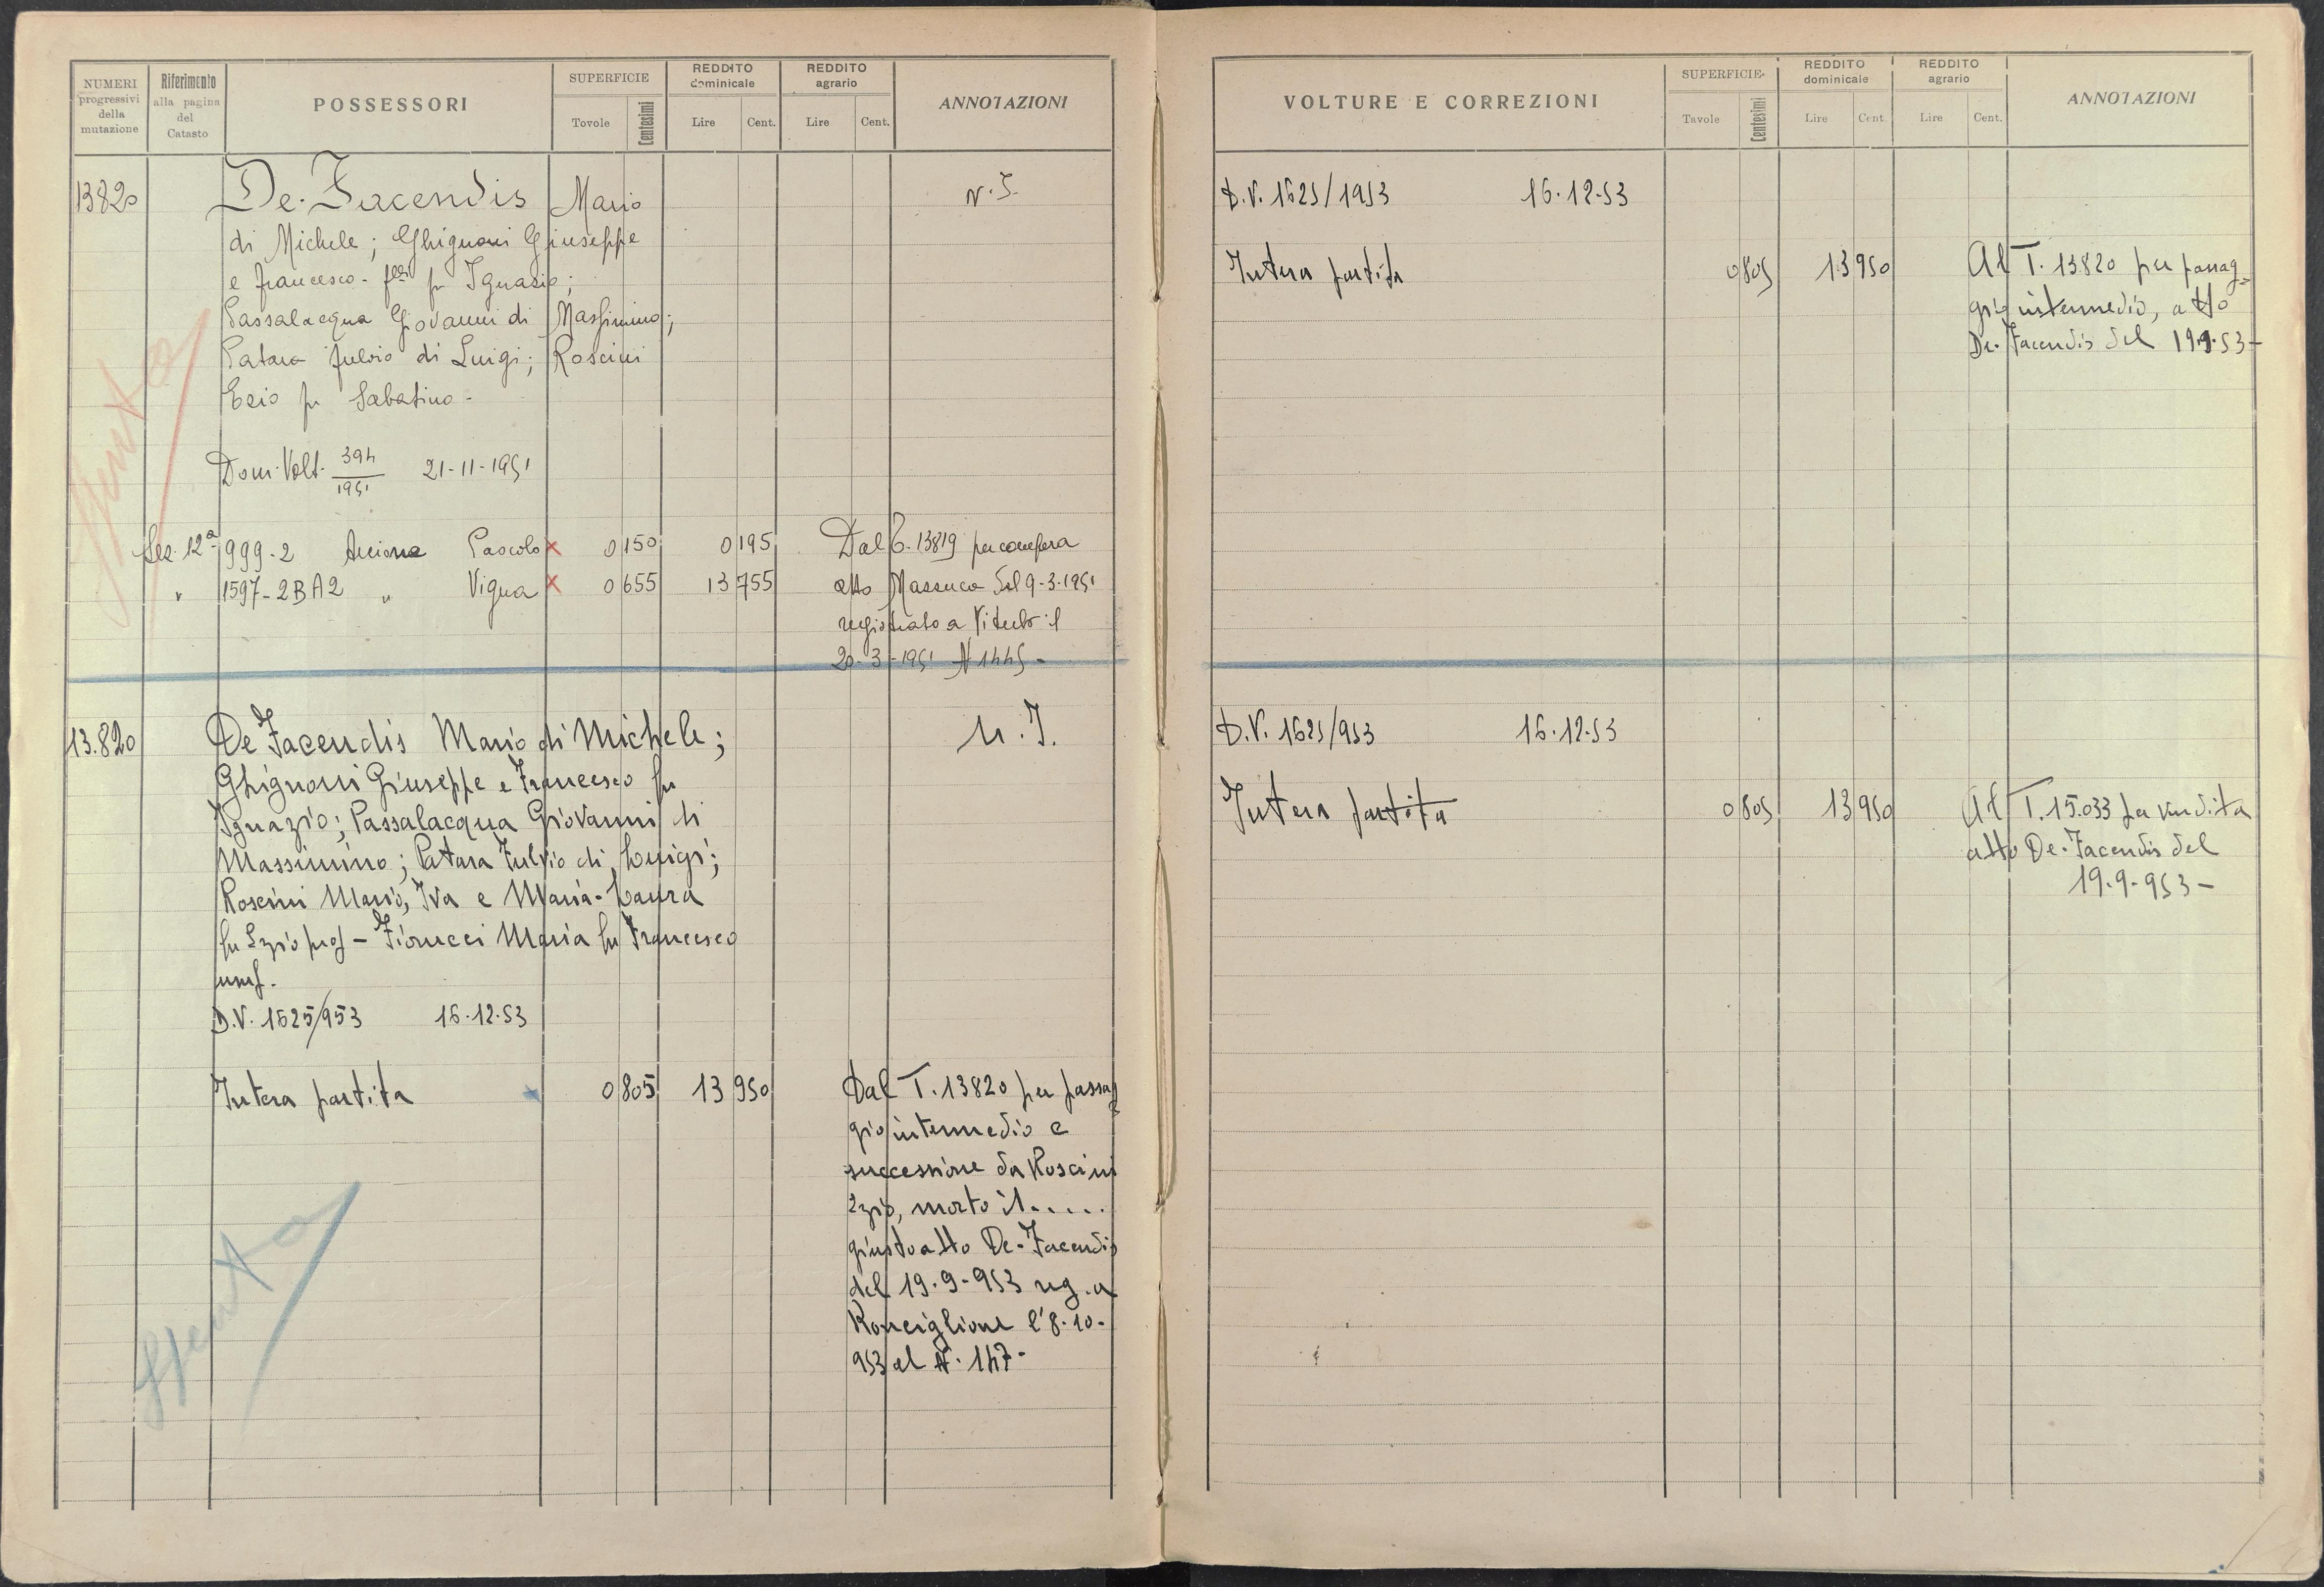 NUMERI progressivi della mutazione
Riferimento alla pagina del Catasto
POSSESSORI
SUPERFICIE
Tovole Centesimi
REDDITO dominicale
Lire Cent.
REDDITO agrario
Lire Cent.
ANNOTAZIONI
13820 De. Facendis Mario N.I.
di Michele; Ghignoni Giuseppe
e francesco - flli fu Ignazio;
Passalacqua Giovanni di Massimino;
Patara fulvio di Luigi; Roscini
Ezio fu Sabatino -
Spento
Dom. Volt. 394/1951 21-11-1951
Sez. 12ª 999-2 Pascolo x 0 150 0 195 Dal 13819 per compera
" 1597-2BA2 " Vigna x 0 655 13 755 atto Massuca del 9-3-1951
registrato a Viterbo il
20-3-1951 N 1445 -
13.820 De Facendis Mario di Michele; N.I.
Ghignoni Giuseppe e Francesco fu
Ignazio; Passalacqua Giovanni di
Massimino; Patara Fulvio di Luigi;
Roscini Mario, Iva e Maria-Laura
fu Ezio prof - Fiorucci Maria fu Francesco
usuf.
D.V. 1625/953 16.12.53
Intera partita x 0 805 13 950 Dal T. 13820 per passag
gio intermedio e
successione da Roscini
Ezio, morto il.....
giusto atto De-Facendis
del 19.9-953 reg. a
Ronciglione l'8-10-
953 al N. 147-
Spento
VOLTURE E CORREZIONI
SUPERFICIE
Tavole Centesimi
REDDITO dominicale
Lire Cent.
REDDITO agrario
Lire Cent.
ANNOTAZIONI
D.V. 1625/1953 16.12.53
Intera partita 0 805 13 950 Al T. 13820 per passag=
gio intermedio, atto
De-Facendis del 19.9.53-
D.V. 1625/953 16.12.53
Intera partita 0 805 13 950 Al T. 15.033 per vendita
atto De-Facendis del
19.9-953-